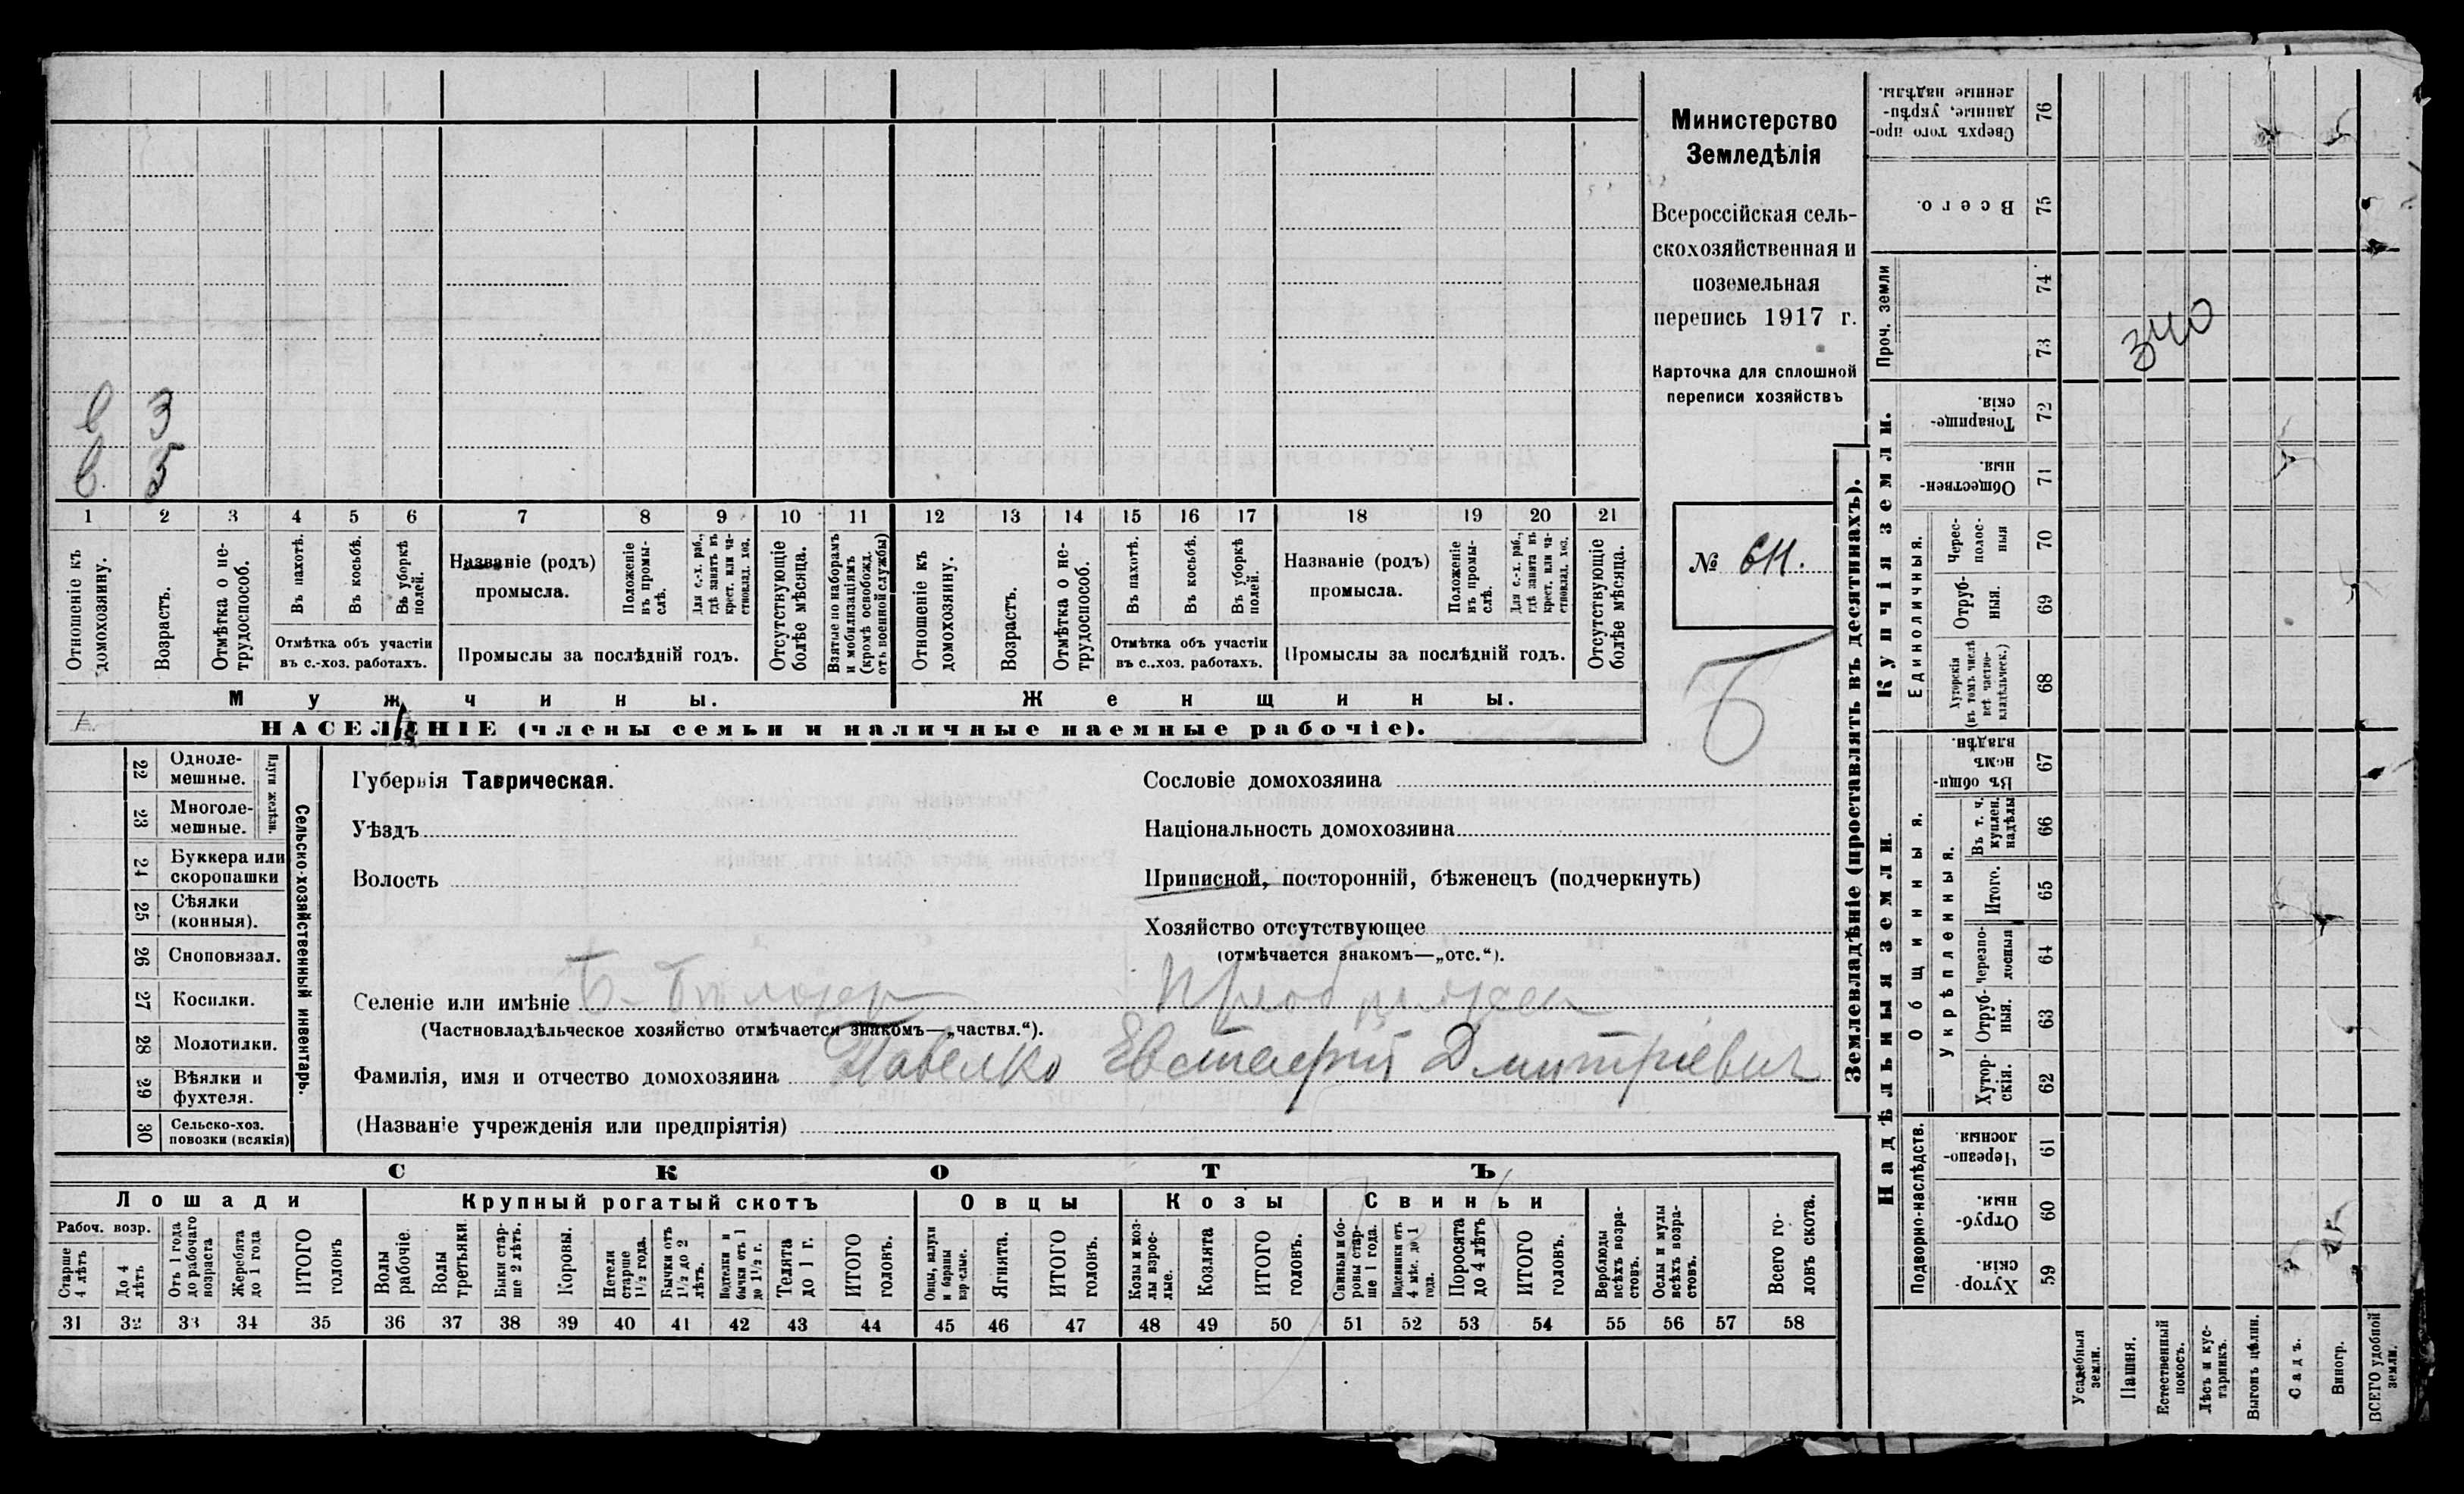 Министерство
Земледѣлія
Всероссійская сель-
скохозяйственная и
поземельная
перепись 1917 г.
Карточка для сплошной
переписи хозяйствъ
№ 611.
Б
в 3
в 5
1 2 3 4 5 6 7 8 9 10 11 12 13 14 15 16 17 18 19 20 21
Отношеніе къ домохозяину.
Возрастъ.
Отмѣтка о не-трудоспособ.
Въ пахотѣ.
Въ косьбѣ.
Въ уборкѣ полей.
Отмѣтка объ участіи
въ с.-хоз. работахъ.
Названіе (родъ)
промысла.
Положеніе въ промы-слѣ.
Для с.-х. раб., гдѣ занятъ въ крест. или ча-стновлад. хоз.
Промыслы за послѣдній годъ.
Отсутствующіе болѣе мѣсяца.
Взятые по наборамъ и мобилизаціямъ (кромѣ освобожд. отъ военной службы)
Отношеніе къ домохозяину.
Возрастъ.
Отмѣтка о не-трудоспособ.
Въ пахотѣ.
Въ косьбѣ.
Въ уборкѣ полей.
Отмѣтка объ участіи
въ с.-хоз. работахъ.
Названіе (родъ)
промысла.
Положеніе въ промы-слѣ.
Для с.-х. раб., гдѣ занята въ крест. или ча-стновлад. хоз.
Промыслы за послѣдній годъ.
Отсутствующіе болѣе мѣсяца.
Мужчины. Женщины.
НАСЕЛЕНІЕ (члены семьи и наличные наемные рабочіе).
22 Одноле-мешные.
23 Многоле-мешные.
Плуги желѣзн.
24 Буккера или скоропашки
25 Сѣялки (конныя).
26 Сноповязал.
27 Косилки.
28 Молотилки.
29 Вѣялки и фухтеля.
30 Сельско-хоз. повозки (всякія)
Сельско-хозяйственный инвентарь.
Губернія Таврическая.
Уѣздъ
Волость
Сословіе домохозяина
Національность домохозяина
Приписной, посторонній, бѣженецъ (подчеркнуть)
Хозяйство отсутствующее
(отмѣчается знакомъ—„отс.“).
Селеніе или имѣніе Б-Бѣлозер
(Частновладѣльческое хозяйство отмѣчается знакомъ—„частвл.“).
Фамилія, имя и отчество домохозяина Павелко Евстафій Дмитріевич
(Названіе учрежденія или предпріятія)
СКОТЪ
Лошади Крупный рогатый скотъ Овцы Козы Свиньи
Рабоч. возр.
Старше 4 лѣтъ
До 4 лѣтъ
Отъ 1 года до рабочаго возраста
Жеребята до 1 года
ИТОГО головъ
Волы рабочіе.
Волы третьяки.
Быки стар-ше 2 лѣтъ.
Коровы.
Нетели старше 1½ года.
Бычки отъ 1½ до 2 лѣтъ.
Подтелки и бычки отъ 1 до 1½ г.
Телята до 1 г.
ИТОГО головъ.
Овцы, валухи и бараны взрослые.
Ягнята.
ИТОГО головъ.
Козы и коз-лы взрос-лые.
Козлята
ИТОГО головъ.
Свиньи и бо-ровы стар-ше 1 года.
Подсвинки отъ 4 мѣс. до 1 года.
Поросята до 4 лѣтъ
ИТОГО головъ.
Верблюды всѣхъ возра-стовъ.
Ослы и мулы всѣхъ возра-стовъ.
Всего го-ловъ скота.
31 32 33 34 35 36 37 38 39 40 41 42 43 44 45 46 47 48 49 50 51 52 53 54 55 56 57 58
Землевладѣніе (проставлять въ десятинахъ).
Сверхъ того про-данные, укрѣп-ленные надѣлы. 76
Всего. 75
Проч. земли 74 73
Купчія земли.
Товарище-скія. 72
Обществен-ныя. 71
Единоличныя.
Черес-полос-ныя 70
Отруб-ныя. 69
Хуторскія (въ томъ числѣ всѣ частно-владѣльческ.) 68
Надѣльныя земли.
Общинныя.
Въ общи-номъ владѣн. 67
Укрѣпленныя.
Въ т. ч. куплен. надѣлы 66
Итого. 65
Черезпо-лосныя 64
Отруб-ныя. 63
Хутор-скія. 62
Подворно-наслѣдств.
Черезпо-лосныя. 61
Отруб-ныя. 60
Хутор-скія. 59
340
Усадебныя земли.
Пашня.
Естественный покосъ.
Лѣсъ и кус-тарникъ.
Выгонъ цѣлин.
Садъ.
Виногр.
ВСЕГО удобной земли.